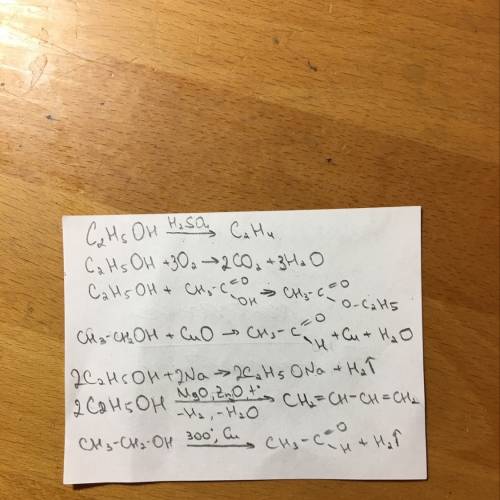 C₂H₅OH H₂SO₄→ C₂H₄
C₂H₅OH + 3O₂ → 2CO₂ + 3H₂O
C₂H₅OH + CH₃-C(=O)-OH → CH₃-C(=O)-O-C₂H₅
CH₃-CH₂OH + CuO → CH₃-C(=O)-H + Cu + H₂O
2C₂H₅OH + 2Na → 2C₂H₅ONa + H₂↑
2C₂H₅OH MgO, ZnO, t° → -H₂, -H₂O CH₂=CH-CH=CH₂
CH₃-CH₂-OH 300°, Cu → CH₃-C(=O)-H + H₂↑